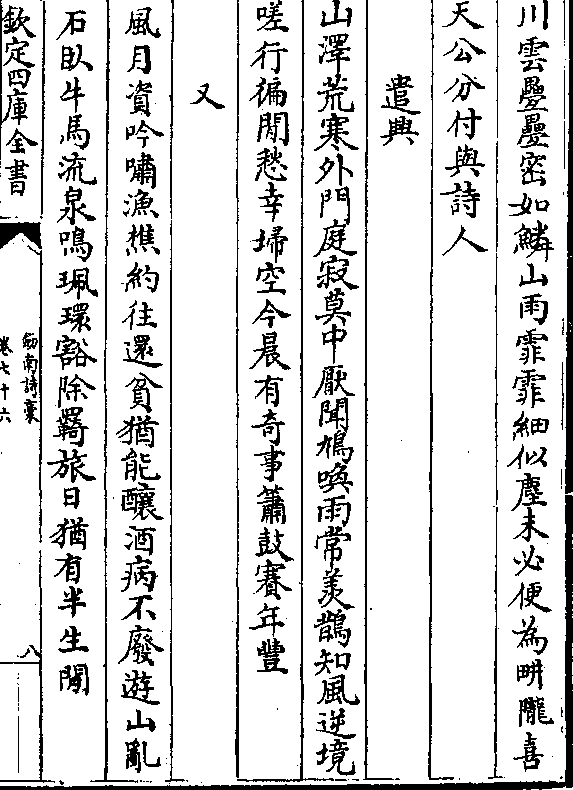 川雲疊疊密如鱗山雨霏霏細似塵未必便為畊隴喜
天公分付與詩人
遣興
山澤荒寒外門庭寂莫中厭聞鳩喚雨常羡鵲知風逆境
嗟行徧閒愁幸埽空今晨有奇事簫鼓賽年豐
又
風月資吟嘯漁樵約往還貧猶能釀酒病不廢遊山亂
石臥牛馬流泉鳴珮環豁除羇旅日猶有半生閒
欽定四庫全書
劒南詩稾
卷七十六
八